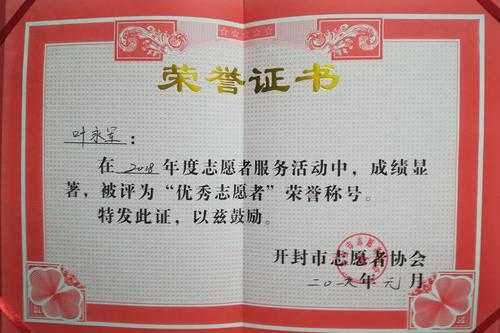 荣誉证书
叶永军：
在2018年度志愿者服务活动中，成绩显
著，被评为“优秀志愿者”荣誉称号。
特发此证，以兹鼓励。
开封市志愿者协会
二〇一九年元月